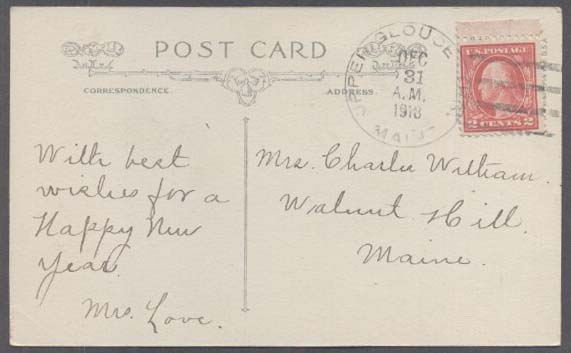 POST CARD
CORRESPONDENCE
ADDRESS
UPPER GLOUCE
DEC
31
A.M.
1918
MAINE
U.S. POSTAGE
2 CENTS 2
With best
wishes for a
Happy New
Year.
Mrs. Love.
Mrs. Charlie Witham.
Walnut Hill.
Maine.